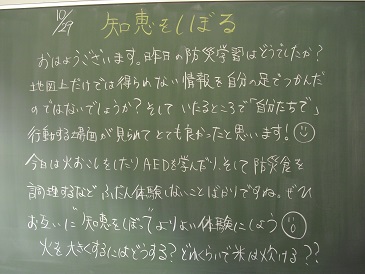 10/29
知恵をしぼる
おはようございます。昨日の防災学習はどうでしたか?
地図上だけでは得られない情報を自分の足でつかんだ
のではないでしょうか?そして いたるところで「自分たちで」
行動する場面が見られてとても良かったと思います!
今日は火おこしをしたりAEDを学んだり、そして防災食を
調理するなど ふだん体験しないことばかりですね。ぜひ
お互いに"知恵をしぼって"よりよい体験にしよう
火を大きくするにはどうする?どれくらいで米は炊ける??